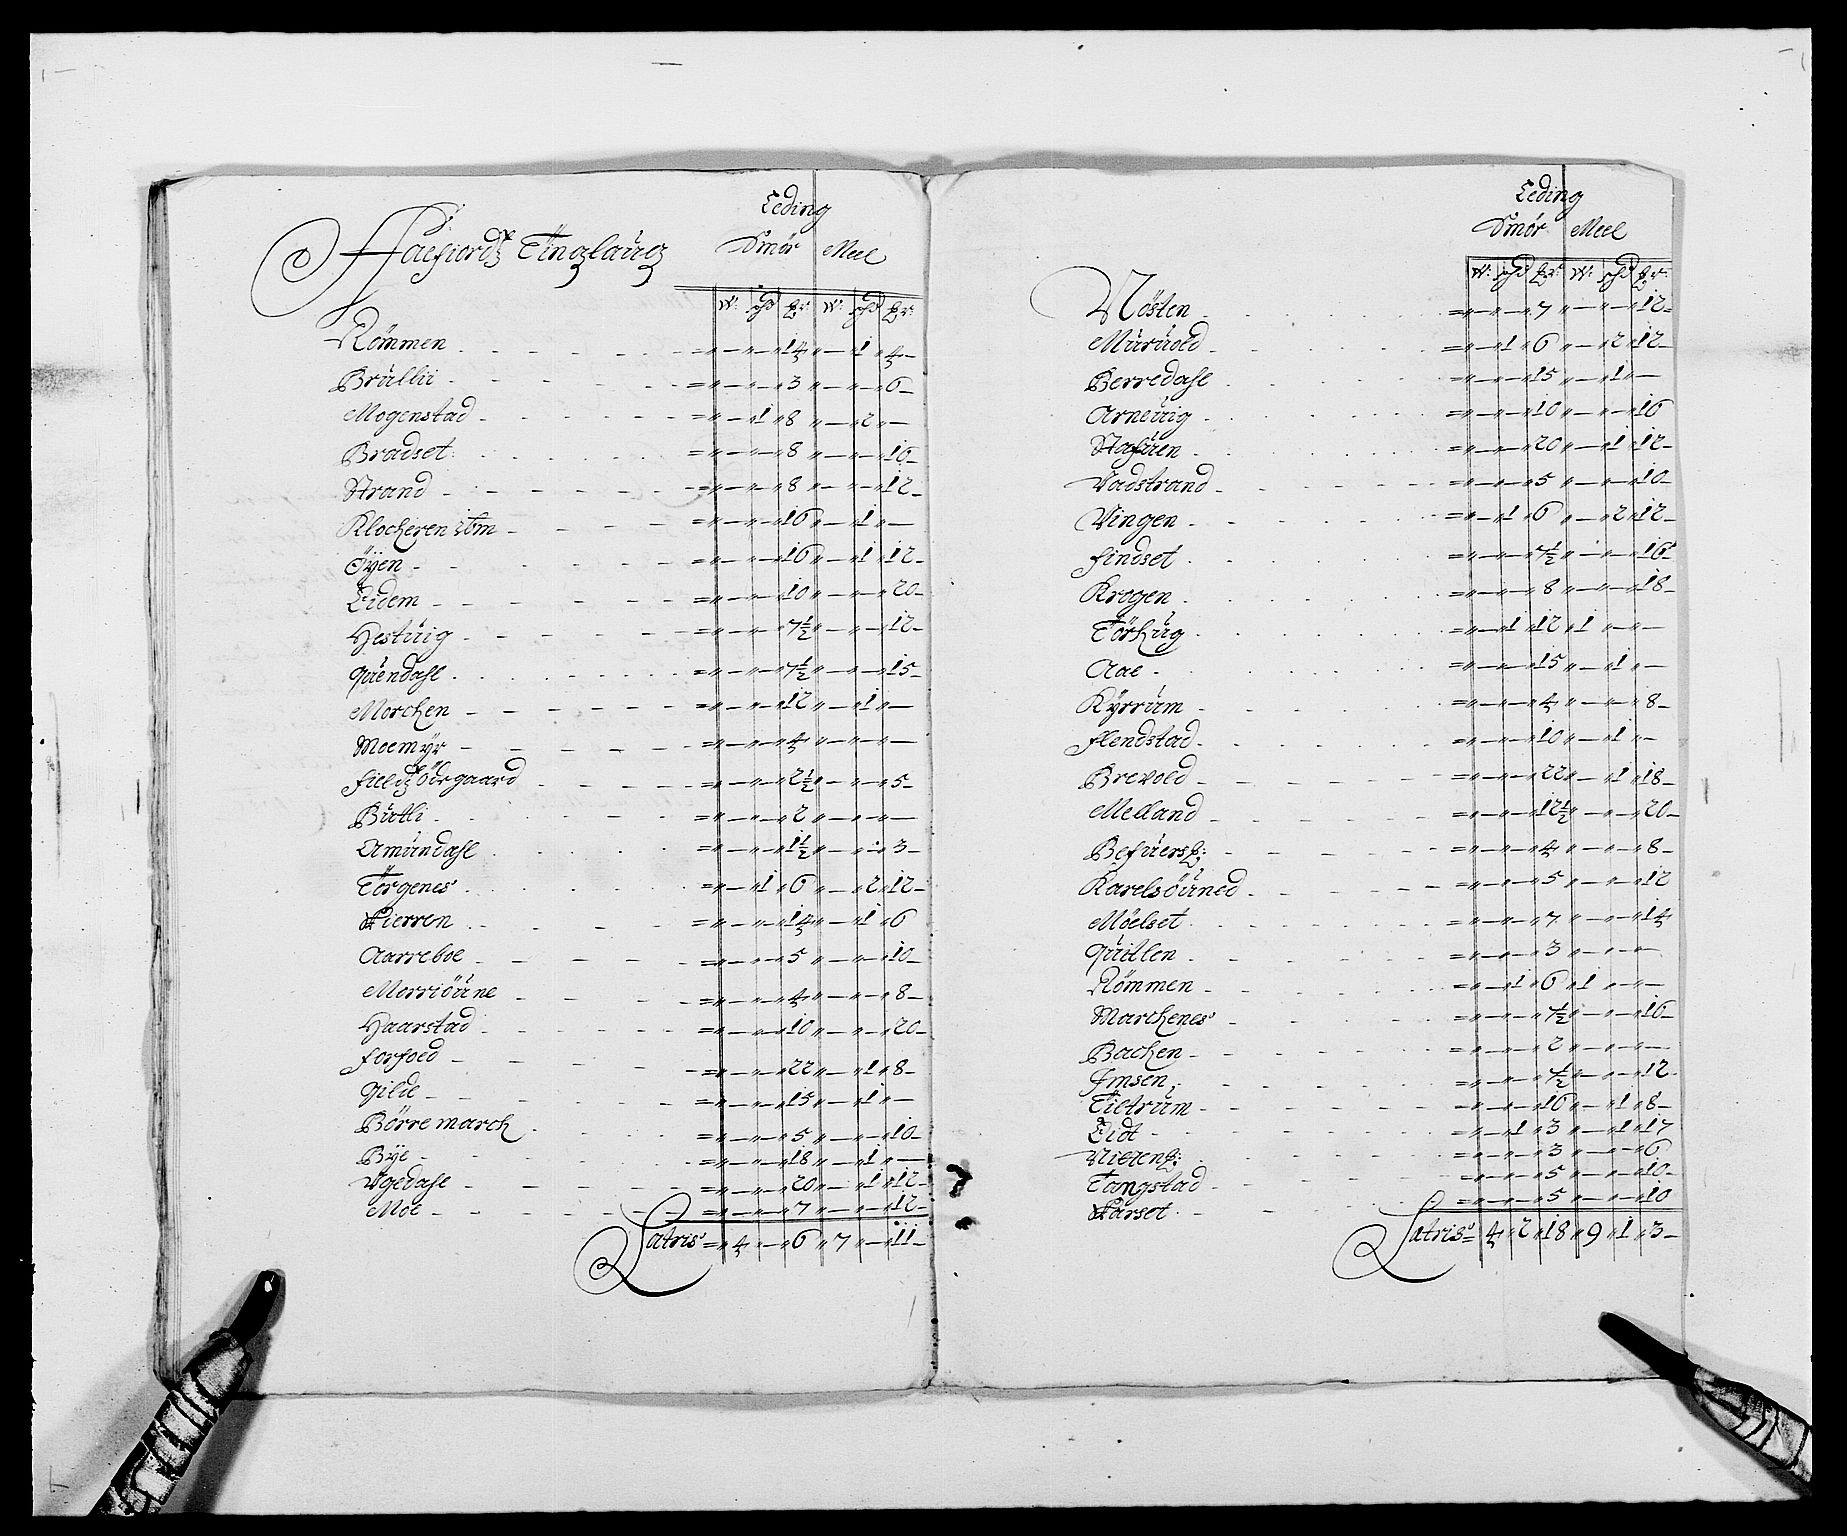 Leding
Aaefiordtz Tinglaug Smör Meel
W: shd p̲r: W: shd p̲r:
Römmen - - - = „ — „ — „ 14 „ — „ 1 „ 4 —
Brülli - - - = „ — „ — „ 3 „ — „ — „ 6 —
Mogenstad - - - = „ — „ 1 „ 8 „ — „ 2 „ —
Bradset - - - = „ — „ — „ 8 „ — „ — „ 16 —
Strand - - - = „ — „ — „ 8 „ — „ — „ 12 —
Klocheren ibm - - - = „ — „ — „ 16 „ — „ 1 „ —
Öÿen - - - = „ — „ — „ 16 „ — „ 1 „ 12 —
Eidem - - - = „ — „ — „ 10 „ — „ — „ 20 —
Hestüig - - - = „ — „ — „ 7½ „ — „ — „ 12 —
qüendahl - - - = „ — „ — „ 7½ „ — „ — „ 15 —
Morchen - - - = „ — „ — „ 12 „ — „ 1 „ —
Moemÿr - - - = „ — „ — „ 4 „ — „ — „ —
fieldtz öürgaard - - - = „ — „ — „ 2½ „ — „ — „ 5 —
Bütli - - - = „ — „ — „ 2 „ — „ — „ —
Amündahl - - - = „ — „ — „ 1½ „ — „ — „ 3 —
Törgenes - - - = „ — „ 1 „ 6 „ — „ 2 „ 12 —
Wierren - - - = „ — „ — „ 14 „ — „ 1 „ 6
Aarreboe - - - = „ — „ — „ 5 „ — „ — „ 10 —
Merriöüne - - - = „ — „ — „ 4 „ — „ — „ 8 —
Haarstad - - - = „ — „ — „ 10 „ — „ — „ 20 —
forfoed - - - = „ — „ — „ 22 „ — „ 1 „ 8 —
Gilde - - - = „ — „ — „ 15 „ — „ 1 „ —
Börremarch - - - = „ — „ — „ 5 „ — „ — „ 10 —
Bÿe - - - = „ — „ — „ 18 „ — „ 1 „ —
Ugedahl - - - = „ — „ — „ 20 „ — „ 1 „ 12 —
Moe - - - = „ — „ — „ 7 „ — „ — „ 12 —
Latris = „ 4 „ — „ 6 „ 7 „ — „ 11 —
Leding
Smör Meel
W: shd p̲r: W: shd p̲r:
Nösten - - - = „ — „ — „ 7 „ — „ — „ 12 =
Mürüold - - - = „ — „ 1 „ 6 „ — „ 2 „ 12 —
Berredahl - - - = „ — „ — „ 15 „ — „ 1 „ —
Arneüig - - - = „ — „ — „ 10 „ — „ — „ 16
Stafüen - - - = „ — „ — „ 20 „ — „ 1 „ 12 —
Vadstrand - - - = „ — „ — „ 5 „ — „ — „ 10 —
Vingen - - - = „ — „ 1 „ 6 „ — „ 2 „ 12 —
findset - - - = „ — „ — „ 7½ „ — „ — „ 16
Krogen - - - = „ — „ — „ 8 „ — „ — „ 18 —
Törhüg - - - = „ — „ 1 „ 12 „ 1 „ — „ —
Aae - - - = „ — „ — „ 15 „ — „ 1 „ —
Kÿrrüm - - - = „ — „ — „ 4 „ — „ — „ 8 —
flendstad - - - = „ — „ — „ 10 „ — „ 1 „ —
Brevold - - - = „ — „ — „ 22 „ — „ 1 „ 18 —
Melland - - - = „ — „ — „ 12½ „ — „ — „ 20 —
- - - = „ — „ — „ 4 „ — „ — „ 8 —
Karelsöüned - - - = „ — „ — „ 5 „ — „ — „ 12
Möelset - - - = „ — „ — „ 7 „ — „ — „ 14
qüitlen - - - = „ — „ — „ 3 „ — „ — „ —
Römmen - - - = „ — „ 1 „ 6 „ 1 „ — „ —
Marchenes - - - = „ — „ — „ 7½ „ — „ — „ 16 —
Bachen - - - = „ — „ — „ 2 „ — „ — „ —
Imsen - - - = „ — „ — „ 7½ „ — „ — „ 12 -
Tietrüm - - - = „ — „ — „ 16 „ — „ 1 „ 8 —
Eidt - - - = „ — „ 1 „ 3 „ — „ 1 „ 17
- - - = „ — „ — „ 3 „ — „ — „ 6
Tangstad - - - = „ — „ — „ 5 „ — „ — „ 10 —
Warset - - - = „ — „ — „ 5 „ — „ — „ 10
Latris = 4 „ 2 „ 18 „ 9 „ 1 „ 3 —